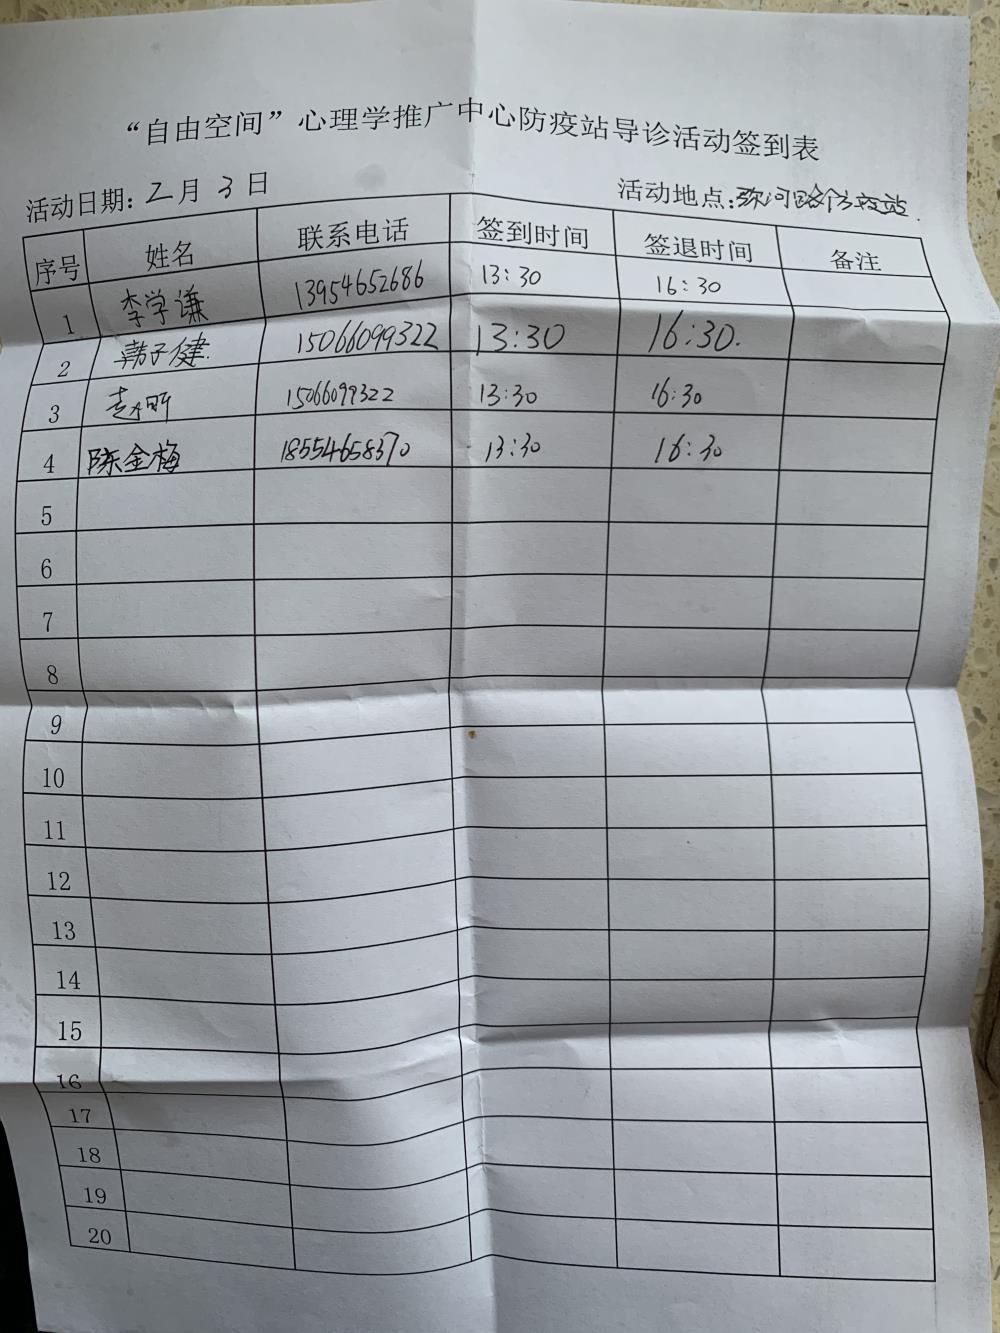 “自由空间”心理学推广中心防疫站导诊活动签到表
活动日期: 2月 3 日 活动地点: 弥河路防疫站
序号 姓名 联系电话 签到时间 签退时间 备注
1 李学谦 13954652686 13:30 16:30
2 韩子健 15066099322 13:30 16:30.
3 15066099322 13:30 16:30
4 陈金梅 18554658370 13:30 16:30
5
6
7
8
9
10
11
12
13
14
15
16
17
18
19
20